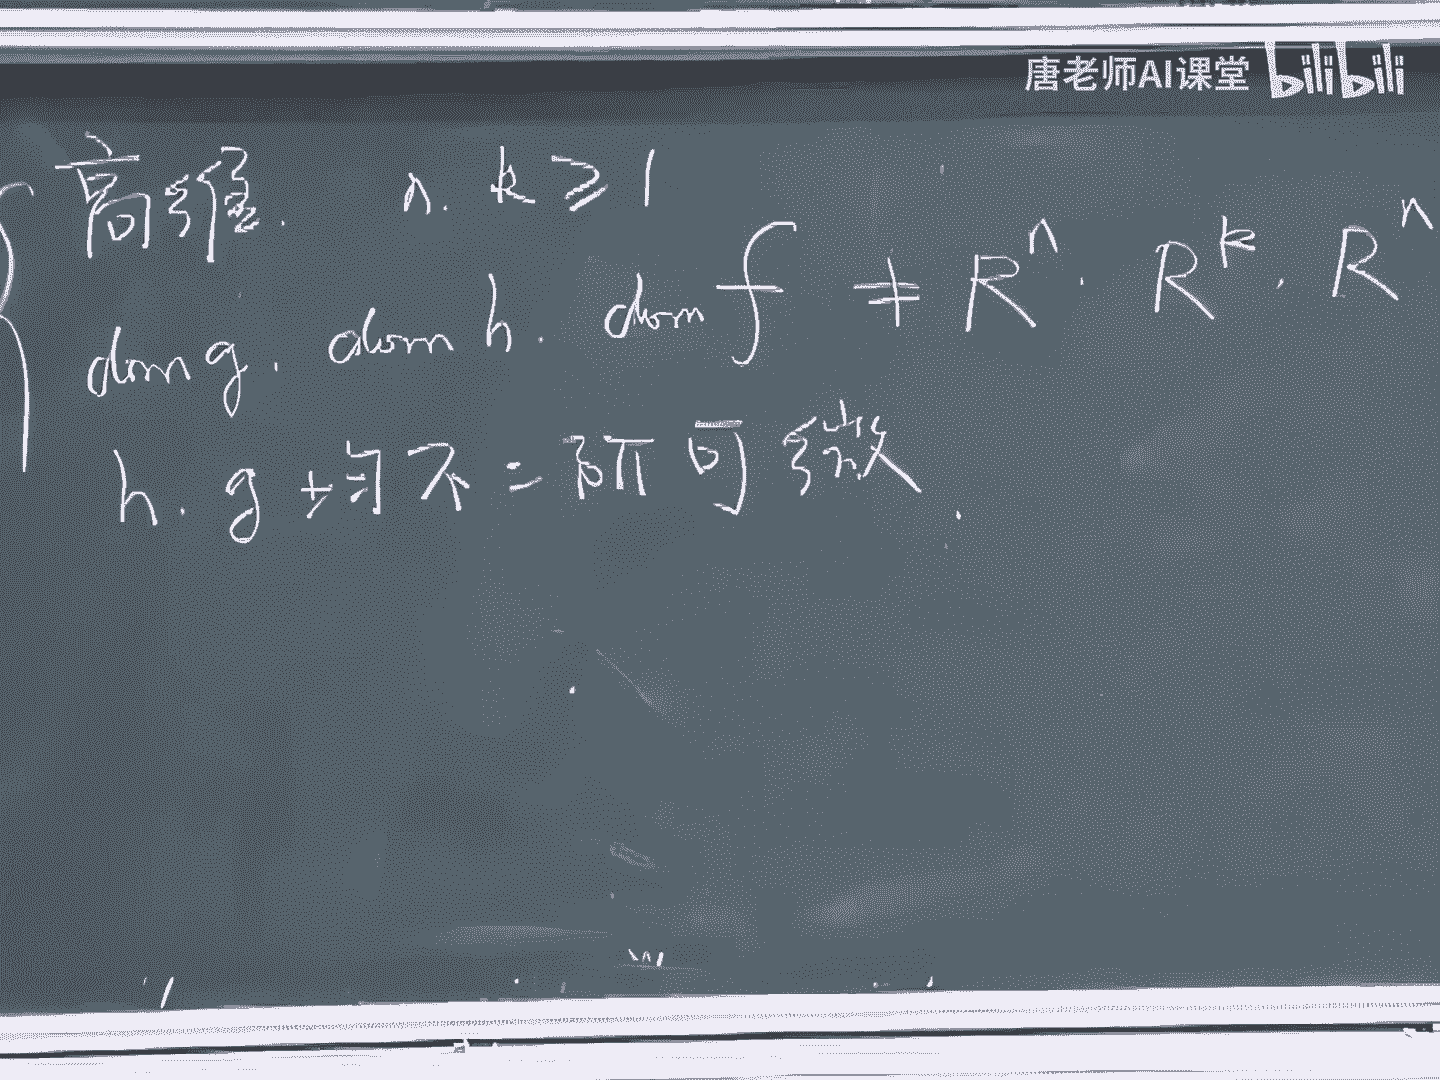 唐老师AI课堂 bilibili
高维. n. k ≥ 1
dom g. dom h. dom f ≠ R^n. R^k. R^n
h. g 均不=阶可微.